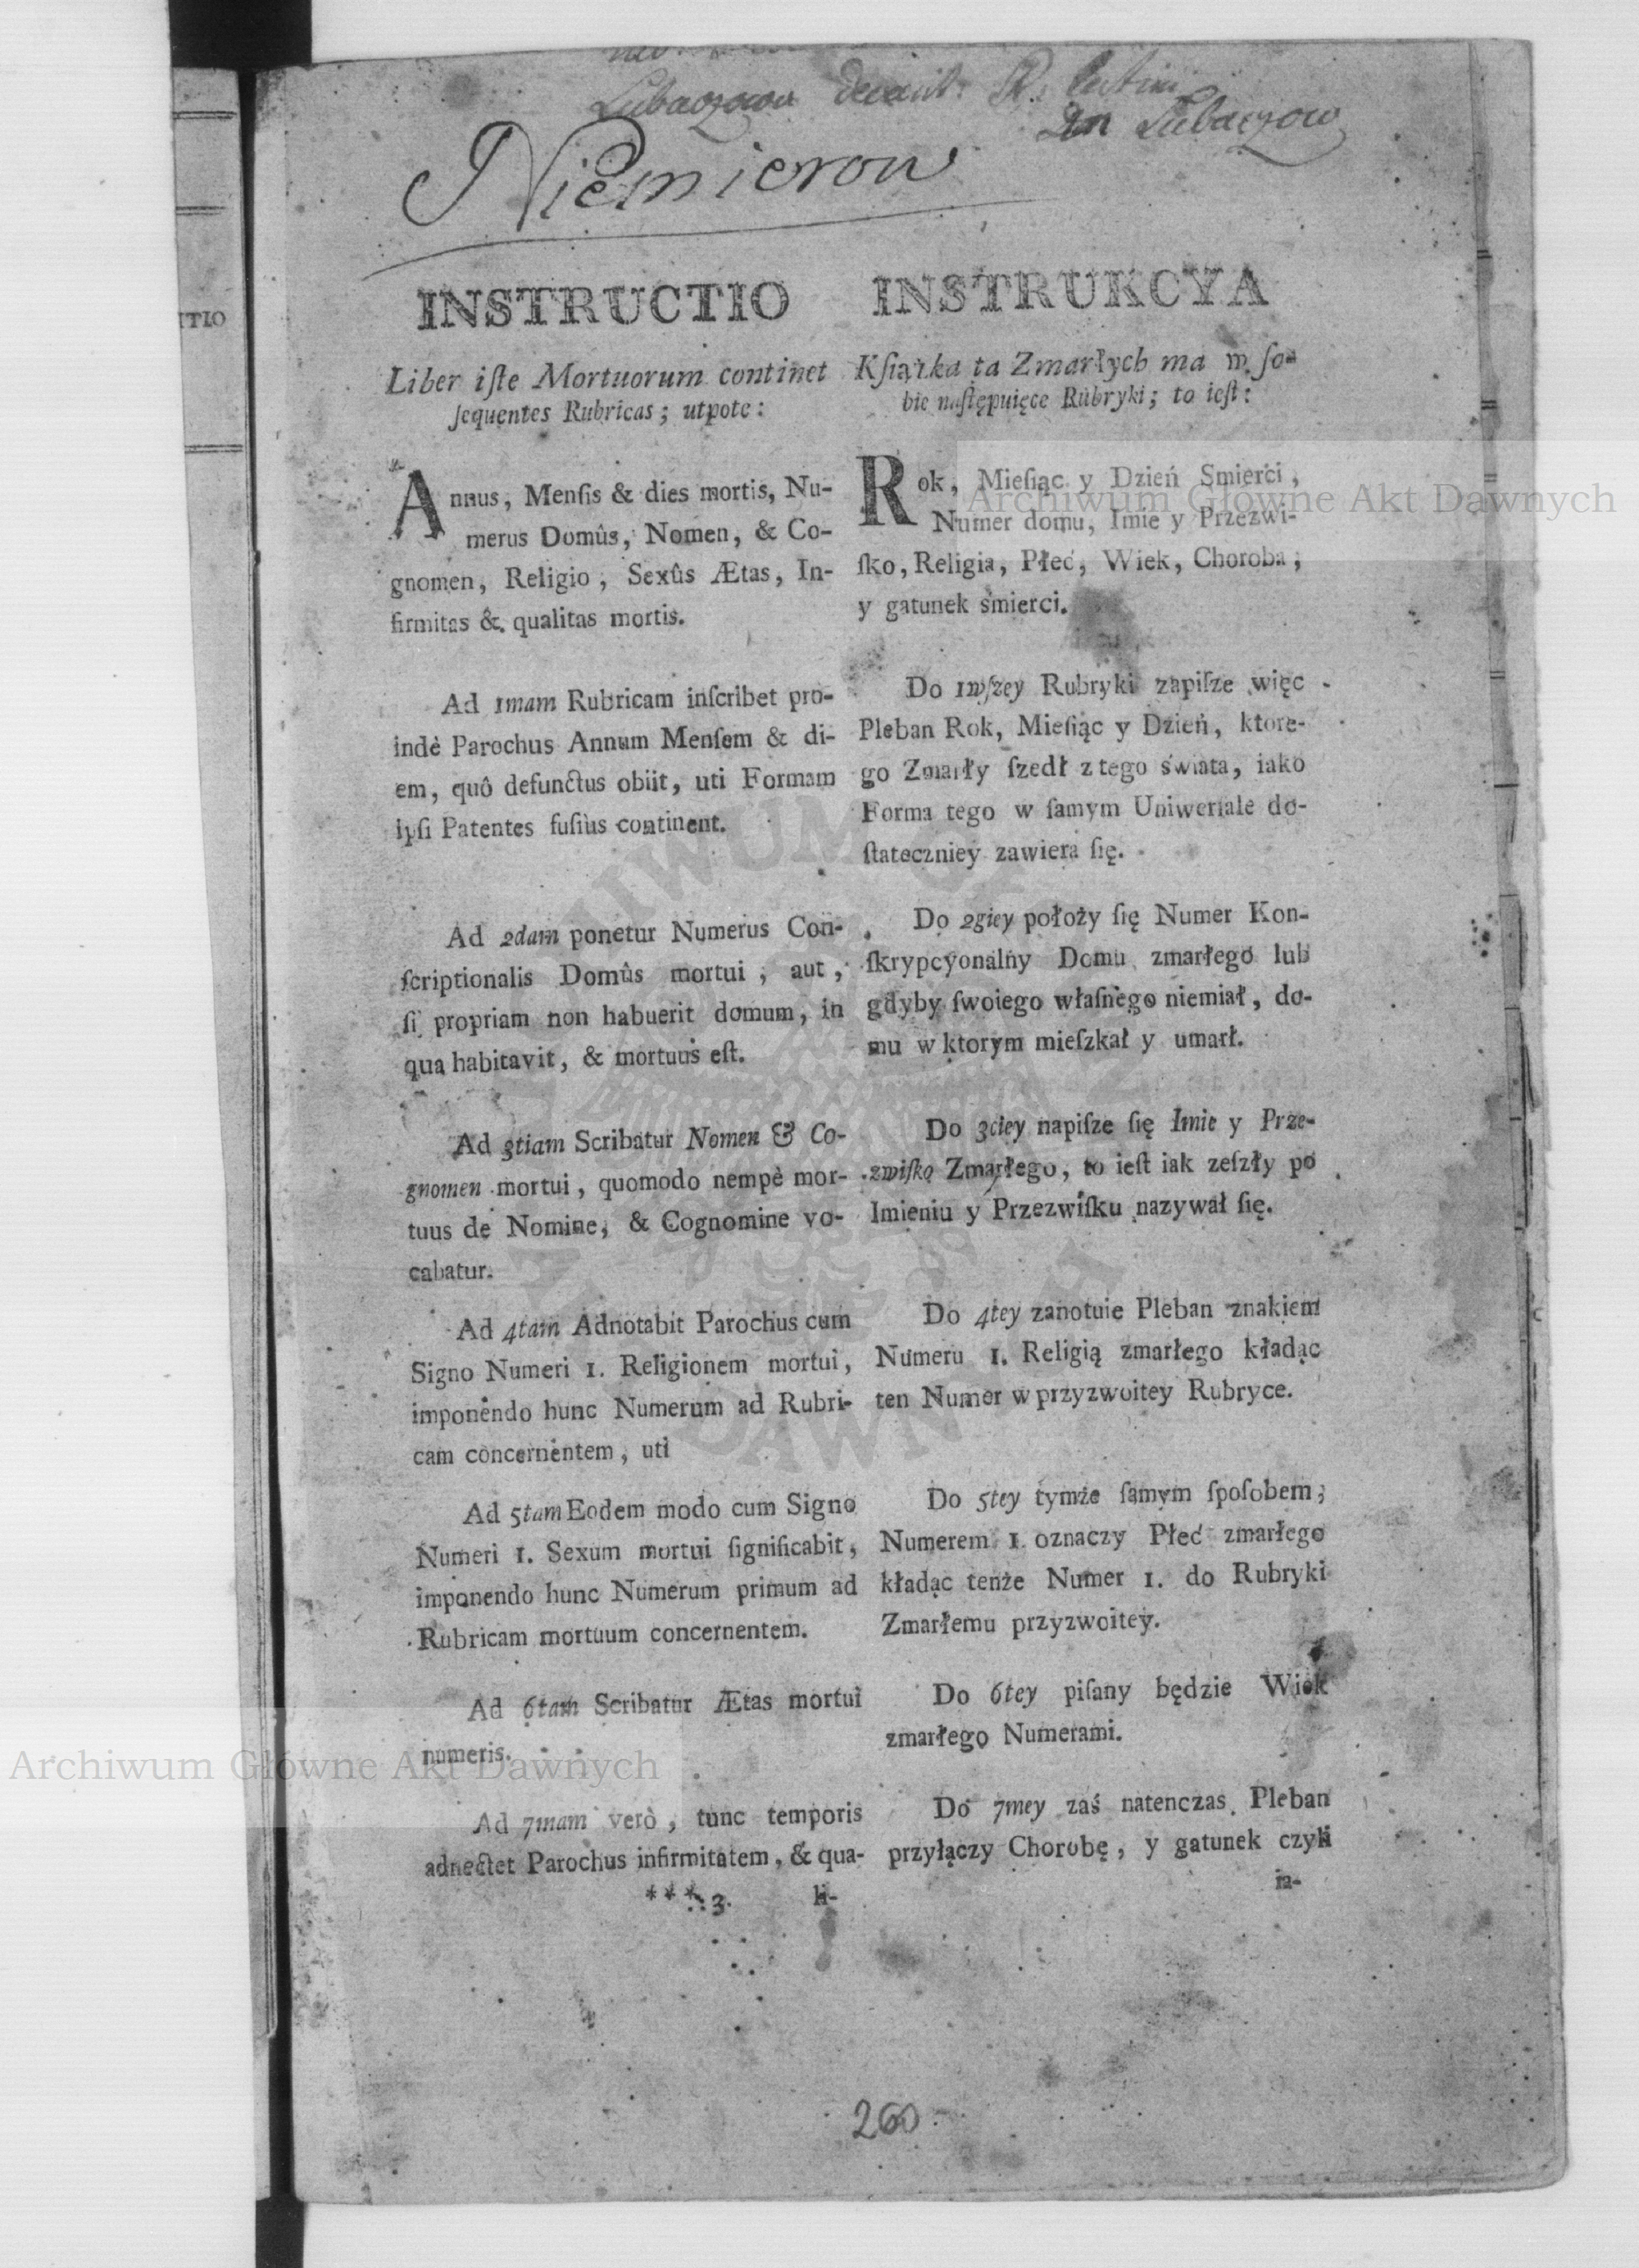 Lubaczow
An Lubaczow
Niemierow
INSTRUCTIO
Liber iſte Mortuorum continet
ſequentes Rubricas; utpote:
Annus, Menſis & dies mortis, Nu-
merus Domûs, Nomen, & Co-
gnomen, Religio, Sexûs Ætas, In-
firmitas & qualitas mortis.
Ad 1mam Rubricam inſcribet pro-
indè Parochus Annum Menſem & di-
em, quô defunctus obiit, uti Formam
ipſi Patentes fuſiùs continent.
Ad 2dam ponetur Numerus Con-
ſcriptionalis Domûs mortui, aut,
ſi propriam non habuerit domum, in
qua habitavit, & mortuus eſt.
Ad 3tiam Scribatur Nomen & Co-
gnomen mortui, quomodo nempè mor-
tuus de Nomine, & Cognomine vo-
cabatur.
Ad 4tam Adnotabit Parochus cum
Signo Numeri 1. Religionem mortui,
imponendo hunc Numerum ad Rubri-
cam concernentem, uti
Ad 5tam Eodem modo cum Signo
Numeri 1. Sexum mortui ſignificabit,
imponendo hunc Numerum primum ad
Rubricam mortuum concernentem.
Ad 6tam Scribatur Ætas mortui
numeris.
Ad 7mam verò, tunc temporis
adnectet Parochus infirmitatem, & qua-
***3. li-
INSTRUKCYA
Kſiążka ta Zmarłych ma w ſo-
bie naſtępuięce Rubryki; to ieſt:
Rok, Mieſiąc y Dzień Smierci,
Numer domu, Imie y Przezwi-
ſko, Religia, Płeć, Wiek, Choroba,
y gatunek śmierci.
Do 1wſzey Rubryki zapiſze więc
Pleban Rok, Mieſiąc y Dzień, ktore-
go Zmarły ſzedł z tego świata, iako
Forma tego w ſamym Uniwerſale do-
ſtateczniey zawiera ſię.
Do 2giey położy ſię Numer Kon-
ſkrypcyonalny Domu zmarłego lub
gdyby ſwoiego właſnego niemiał, do-
mu w ktorym mieſzkał y umarł.
Do 3ciey napiſze ſię Imie y Prze-
zwiſko Zmarłego, to ieſt iak zeſzły po
Imieniu y Przezwiſku nazywał ſię.
Do 4tey zanotuie Pleban znakiem
Numeru 1. Religią zmarłego kładąc
ten Numer w przyzwoitey Rubryce.
Do 5tey tymże ſamym ſpoſobem;
Numerem 1. oznaczy Płeć zmarłego
kładąc tenże Numer 1. do Rubryki
Zmarłemu przyzwoitey.
Do 6tey piſany będzie Wiek
zmarłego Numerami.
Do 7mey zaś natenczas Pleban
przyłączy Chorobę, y gatunek czyli
ia-
260
ITIO
Archiwum Główne Akt Dawnych
Archiwum Główne Akt Dawnych